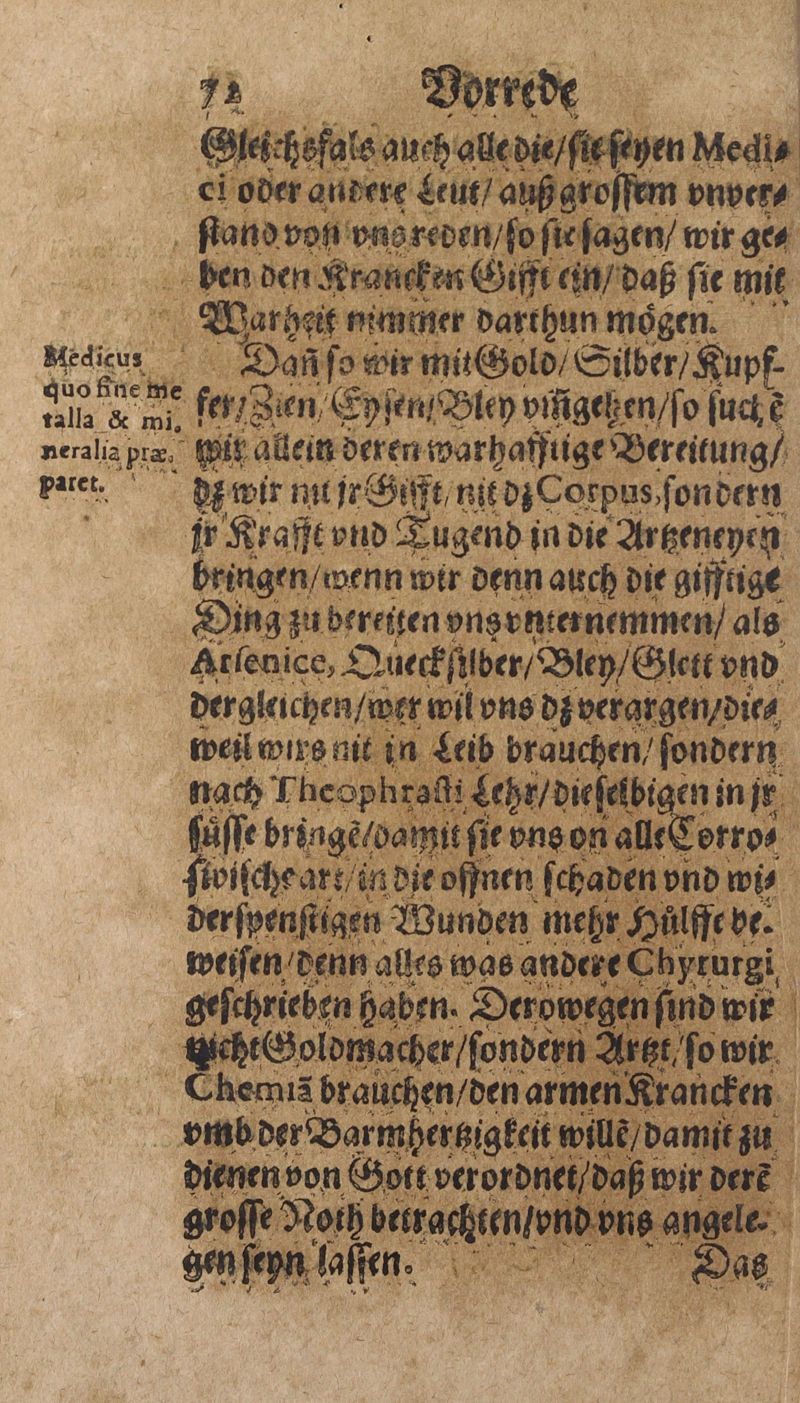 72 Vorrede
Gleichsfals auch alle die/ sie seyen Medi⸗
ci oder andere Leut/ auß grossem vnver⸗
stand von vns reden/ so sie sagen/ wir ge⸗
ben den Krancken Gifft ein/ daß sie mit
Warheit nimmer darthun mögen.
Medicus
quo fine me
talla & mi.
neralia præ.
paret.
Dañ so wir mit Gold/ Silber/ Kupf-
fer/ Zien/ Eysen/ Bley vm̃gehen/ so suchẽ
wir allein deren warhafftige Bereitung/
dz wir nit jr Gifft/ nit dz Corpus, sondern
jr Krafft vnd Tugend in die Artzeneyen
bringen/ wenn wir denn auch die gifftige
Ding zu bereiten vns vnternemmen/ als
Arsenice, Queckſilber/ Bley/ Glett vnd
dergleichen/ wer wil vns dz verargen/ die⸗
weil wirs nit in Leib brauchen/ sondern
nach Theophrasti Lehr/ dieselbigen in jr
süsse bringẽ/ damit sie vns on alle Corro⸗
sivische art/ in die offnen schaden vnd wi⸗
derspenstigen Wunden mehr Hülffe be.
weisen/ denn alles was andere Chyrurgi
geschrieben haben. Derowegen sind wir
nicht Goldmacher/ sondern Artzt/ so wir
Chemiã brauchen/ den armen Krancken
vmb der Barmhertzigkeit willẽ/ damit zu
dienen von Gott verordnet/ daß wir derẽ
grosse Noth betrachten/ vnd vns angele.
gen seyn lassen.
Das